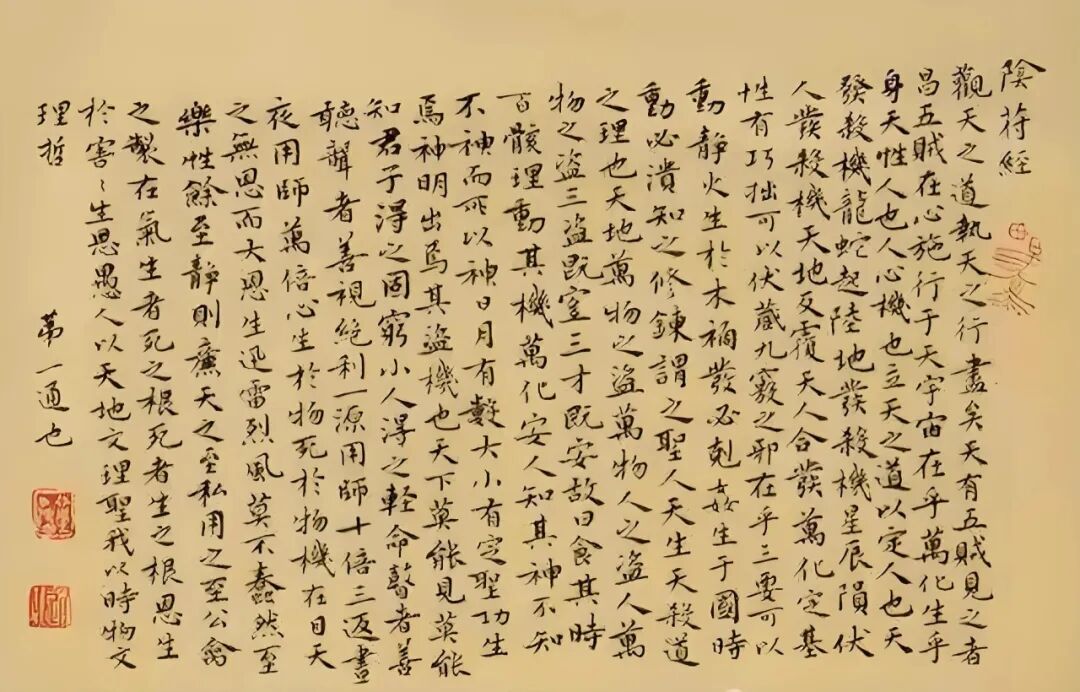 陰符経
觀天之道執天之行盡矣天有五賊見之者
昌五賊在心施行于天宇宙在乎萬化生乎
身天性人也人心機也立天之道以定人也天
發殺機龍蛇起陸地發殺機星辰隕伏
人發殺機天地反覆天人合發萬化定基
性有巧拙可以伏蔵九竅之邪在乎三要可以
動静火生於木禍發必剋姦生于國時
動必潰知之修鍊謂之聖人天生天殺道
之理也天地萬物之盗萬物人之盗人萬
物之盗三盗既宜三才既安故曰食其時
百骸理動其機萬化安人知其神不知
不神而所以神日月有數大小有定聖功生
焉神明出焉其盗機也天下莫能見莫能
知君子得之固窮小人得之輕命瞽者善
聽聾者善視絶利一源用師十倍三返晝
夜用師萬倍心生於物死於物機在目天
之無恩而大恩生迅雷烈風莫不蠢然至
樂性餘至静則廉天之至私用之至公禽
之製在氣生者死之根死者生之根恩生
於害〻生恩愚人以天地文理聖我以時物文
理哲 苐一通也